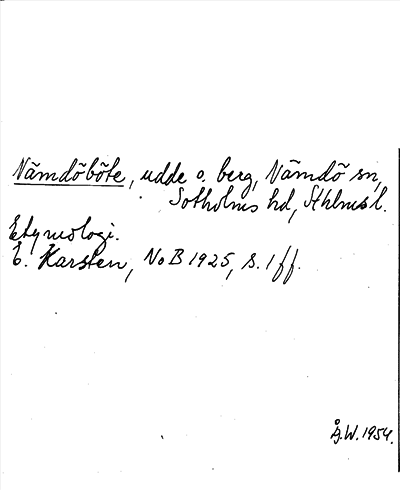 Nämdöböte, udde o. berg, Nämdö sn,
Sotholms hd, Sthlms l.
Etymologi.
E. Karsten, NoB 1925, s. 1 ff.
Å.W. 1954.